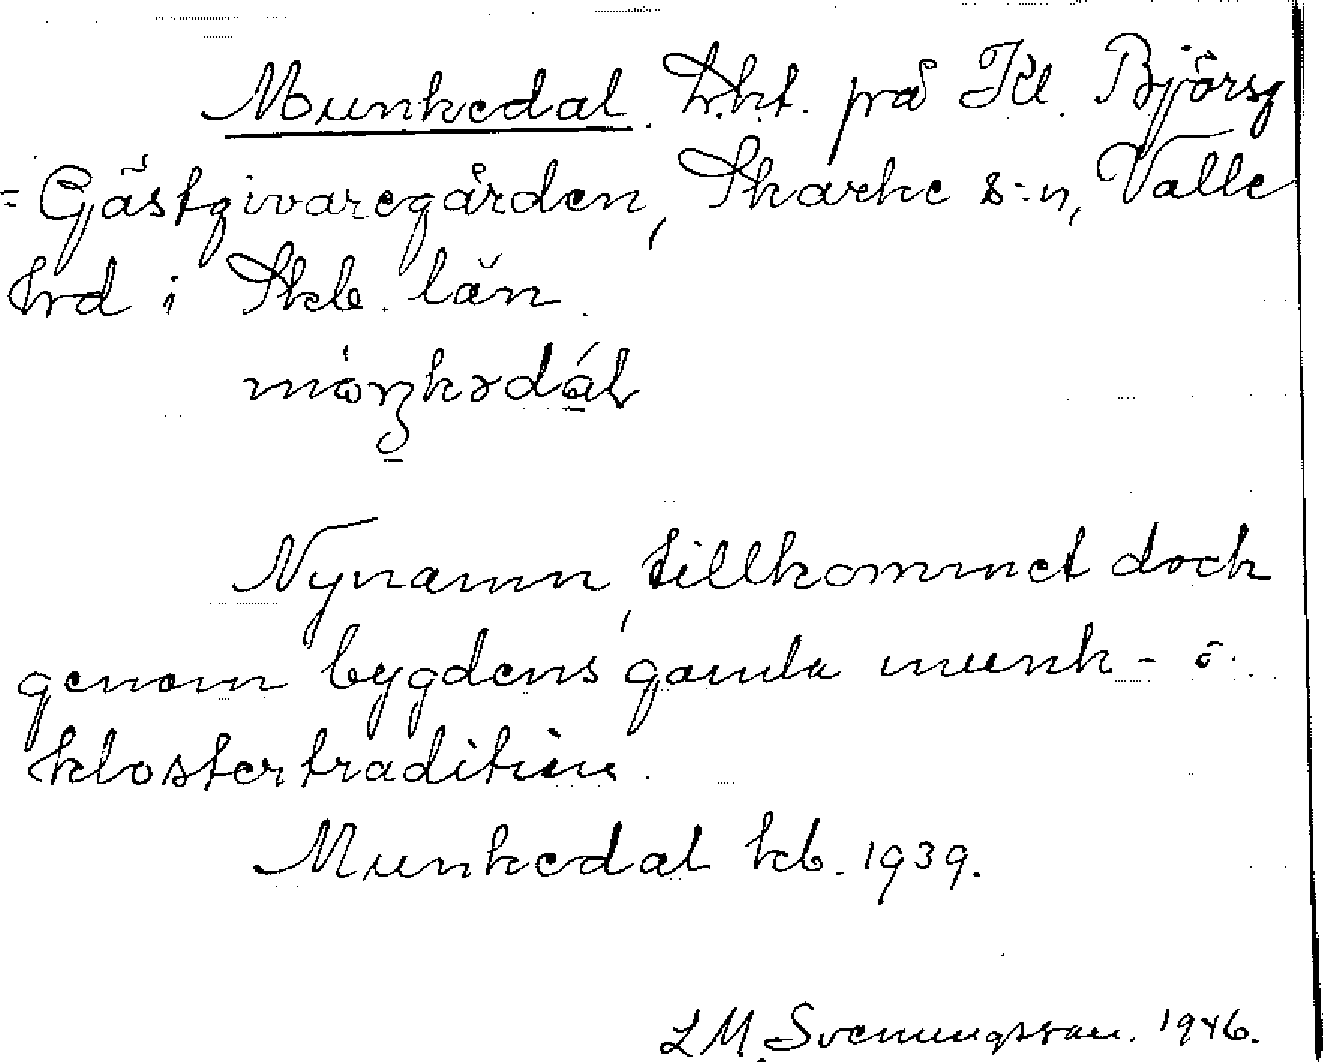 Munkedal. Lht. på Kl. Björsg
= Gästgivaregården, Skarke s:n, Valle
hrd i Skb. län.
mòŋkədál
Nynamn, tillkommet doch
genom bygdens gamla munk- o.
klostertradition.
Munkedal kb. 1939.
L M. Svenungsson. 1946.